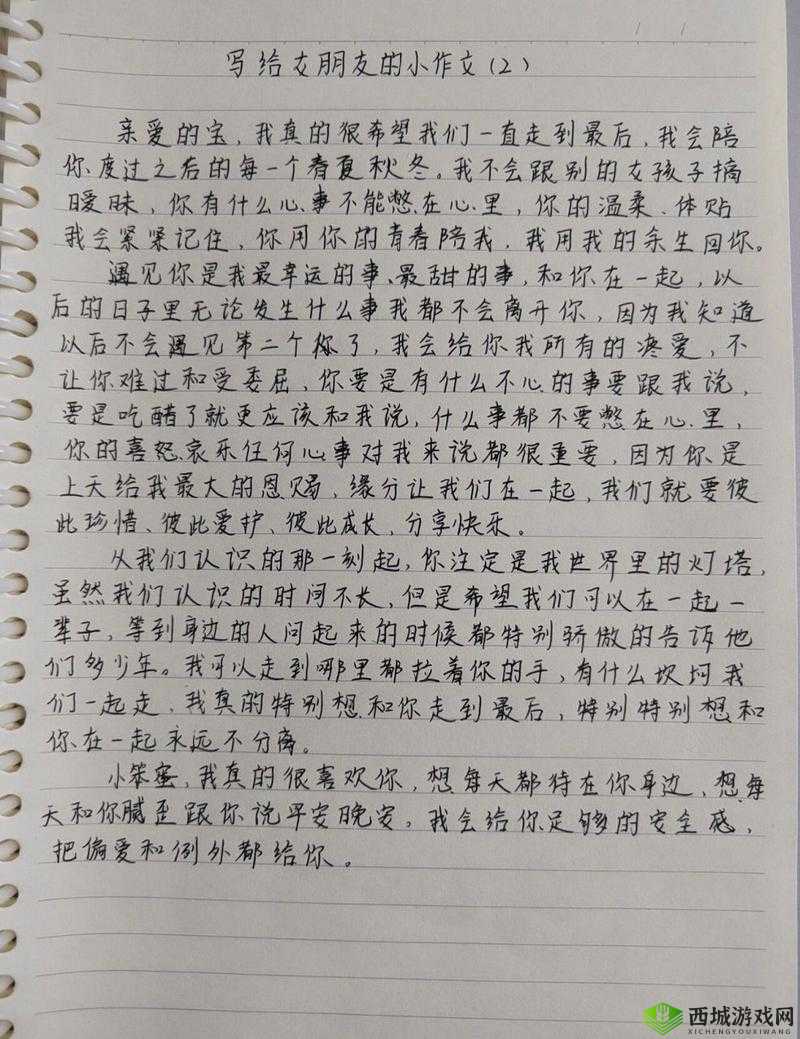 写给女朋友的小作文(2)
亲爱的宝,我真的很希望我们一直走到最后,我会陪
你度过之后的每一个春夏秋冬。我不会跟别的女孩子搞
暧昧,你有什么心事不能憋在心里,你的温柔、体贴
我会紧紧记住,你用你的青春陪我,我用我的余生回你。
遇见你是我最幸运的事、最甜的事,和你在一起,以
后的日子里无论发生什么事我都不会离开你,因为我知道
以后不会遇见第二个你了,我会给你我所有的疼爱,不
让你难过和受委屈,你要是有什么不心的事要跟我说,
要是吃醋了就更应该和我说,什么事都不要憋在心里,
你的喜怒哀乐任何心事对我来说都很重要,因为你是
上天给我最大的恩赐,缘分让我们在一起,我们就要彼
此珍惜、彼此爱护、彼此成长,分享快乐。
从我们认识的那一刻起,你注定是我世界里的灯塔,
虽然我们认识的时间不长,但是希望我们可以在一起一
辈子,等到身边的人问起来的时候都特别骄傲的告诉他
们多少年。我可以走到哪里都拉着你的手,有什么坎坷我
们一起走,我真的特别想和你走到最后,特别特别想和
你在一起永远不分离。
小笨蛋,我真的很喜欢你,想每天都待在你身边,想每
天和你腻歪跟你说早安晚安,我会给你足够的安全感,
把偏爱和例外都给你。
西城游戏网
XICHENGYOUXIWANG